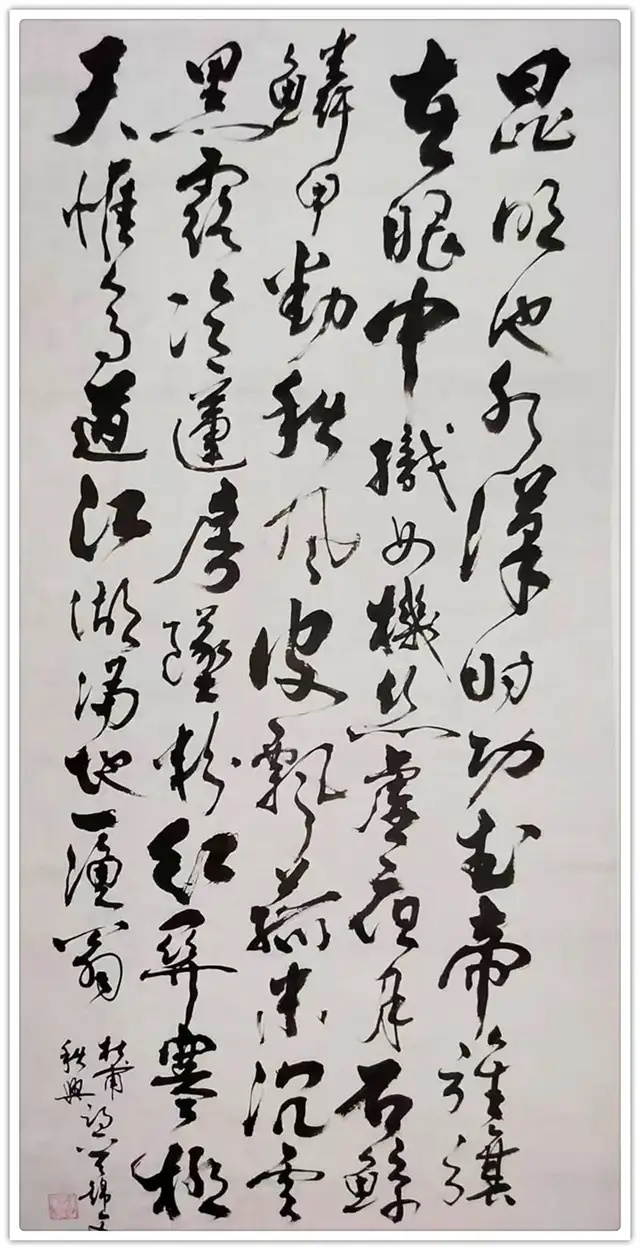 昆明池水漢时功武帝旌旗
在眼中織女機丝虚夜月石鲸
鳞甲動秋风波飘菰米沉雲
黑露冷蓮房墜粉红関塞極
天惟鸟道江湖满地一渔翁
杜甫詩
秋興